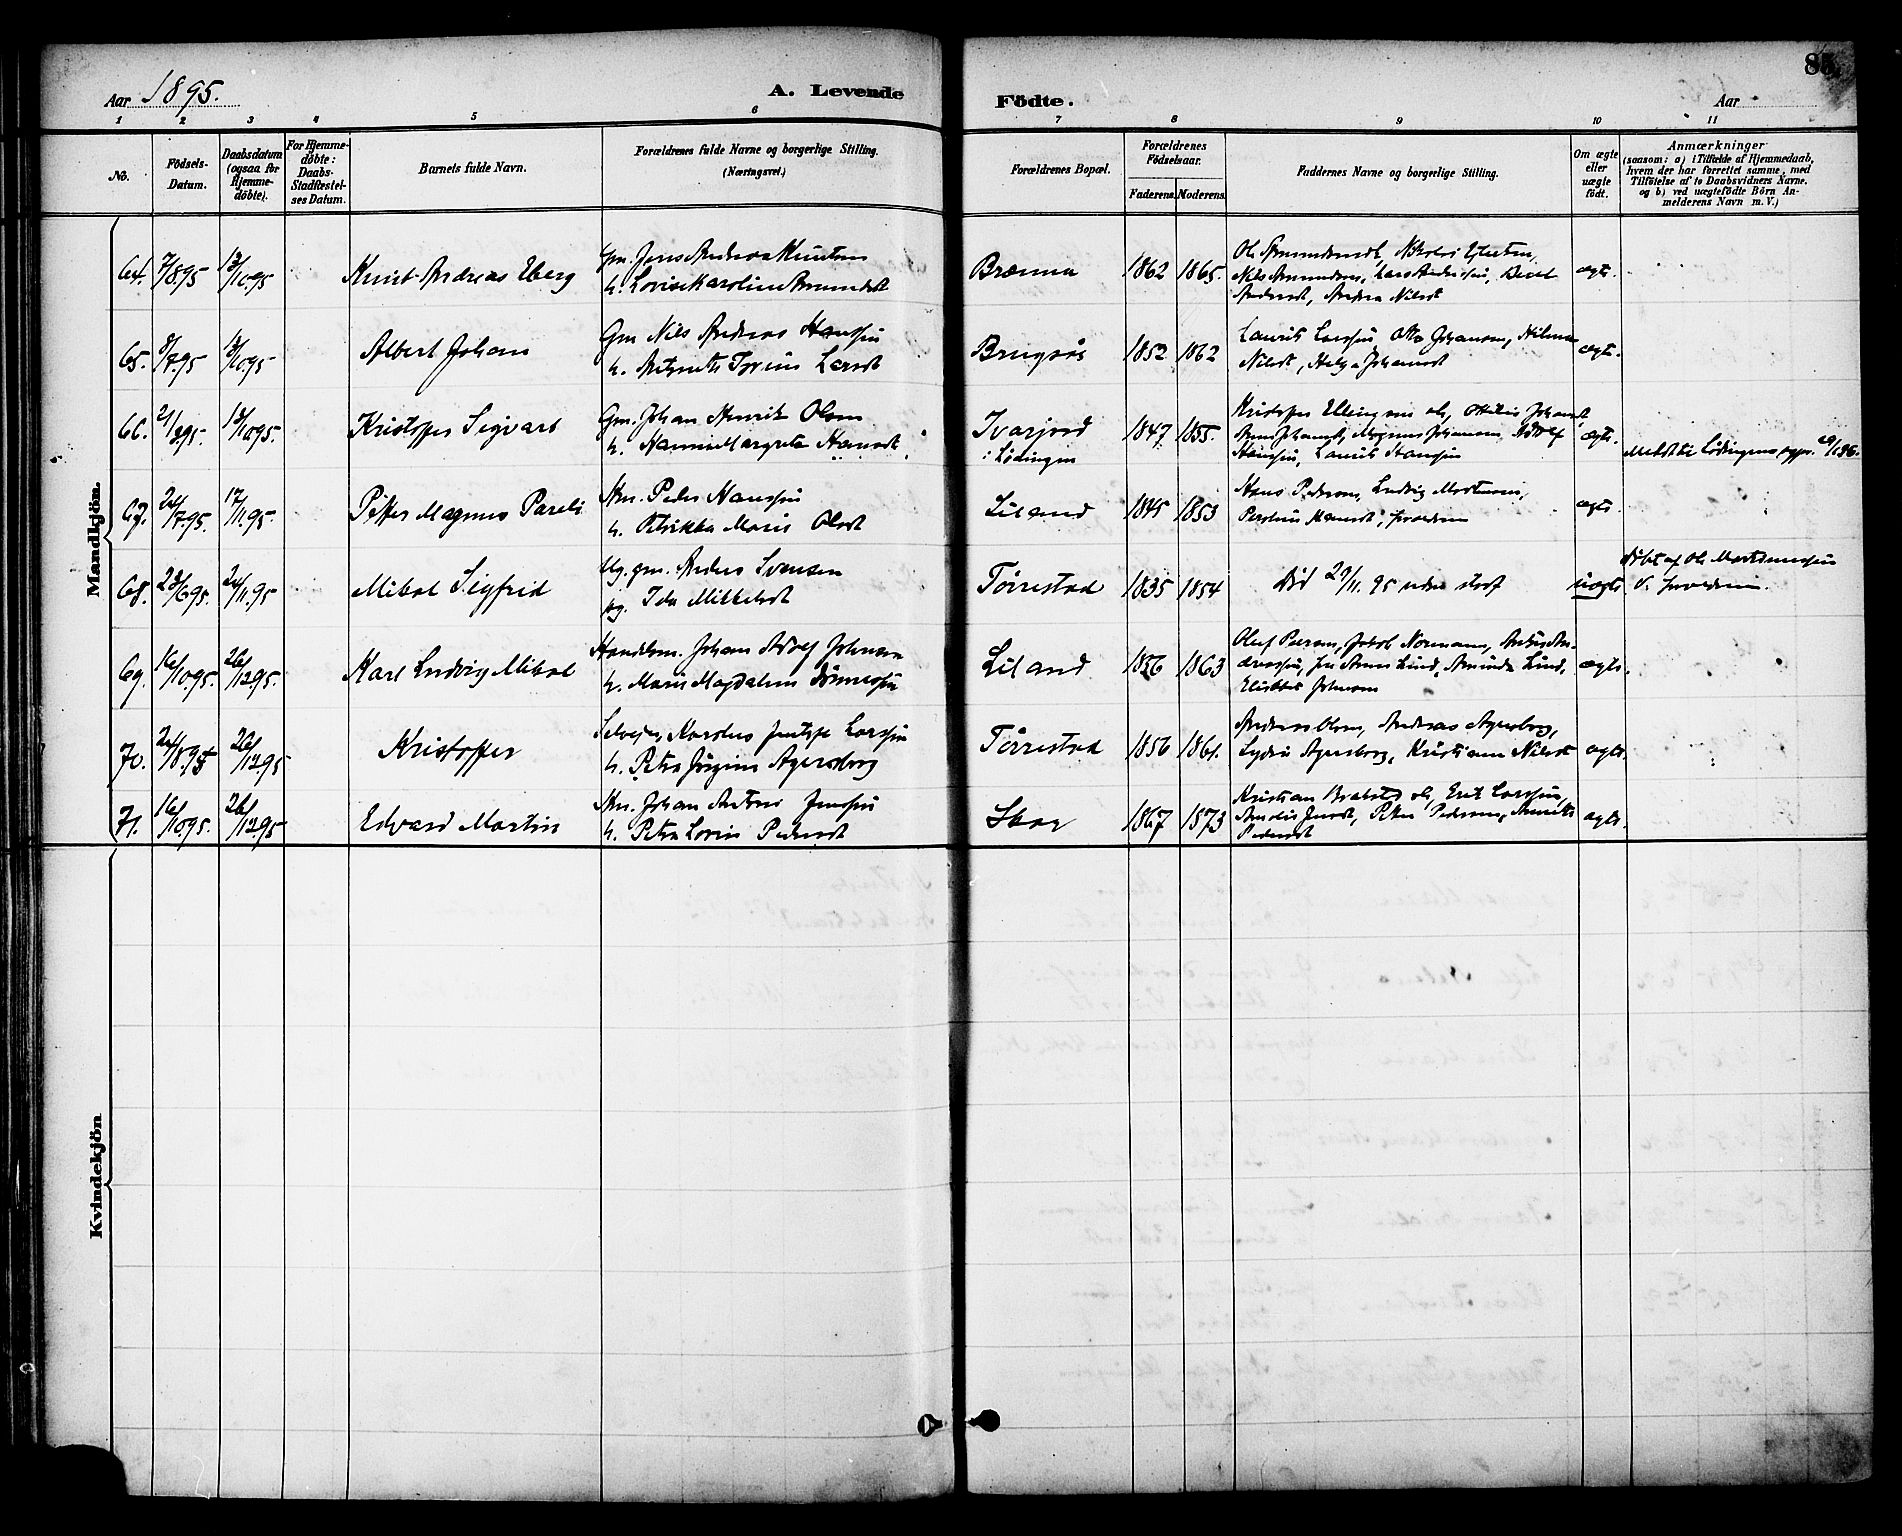 85.
Aar 1895.
A. Levende
Födte.
Aar
1 2 3 4 5 6 7 8 9 10 11
No.
Födsels-
Datum.
Daabsdatum
(ogsaa for
Hjemme-
döbte).
For Hjemme-
döbte:
Daabs-
Stadfæstel-
ses Datum.
Barnets fulde Navn.
Forældrenes fulde Navne og borgerlige Stilling.
(Næringsvei.)
Forældrenes Bopæl.
Forældrenes
Födselsaar.
Faderens. Moderens.
Faddernes Navne og borgerlige Stilling.
Om ægte
eller
uægte
födt.
Anmærkninger
(saasom: a) i Tilfælde af Hjemmedaab,
hvem der har forrettet samme, med
Tilföielse af to Daabsvidners Navne.
og b) ved uægtefödte Börn An-
melderens Navn m. V.)
Mandkjön.
64. 7/8.95 13/10.95
Knut Andreas Eberg
Gm. Jens Andreas Knutsen
h. Lovise Karoline Amundsdt
Brænna
1862 1865.
Nils Amundsen, Lars Andersen,
Andersdt, Andrea Nilsdt
ægte.
65. 8/7.95 13/10.95
Albert Johan
Gm Nils Andreas Hanssen
h. Larsdt
1852 1862
Laurits Larssen, Otto Johansen, Hilma
Nilsdt, Helga Johansdt
ægte.
66. 21/8.95. 13/10.95.
Kristoffer Sigvart
Gm. Johan Henrik Olsen
h. Nanna Margreta Hansdt
Ivarjord
i Lødingen
1847 1855.
Kristoffer Ellingsen
Magnus Johansen, Adolf
Hanssen, Laurits Hanssen
ægte.
Meldt til Lødingens
67. 24/7.95. 17/11.95.
Petter Magnus Pareli
Peder Hanssen
h. Petrikka Marie Olsdt
Liland
1845 1853
Hans Pedersen, Ludvig Mortensen,
Hansdt, forældrene
ægte
68. 23/6.95. 24/11.95
Mikal Sigfrid
Ug. gm. Anders Svensen
pg. Ida Mikkelsdt
Tørrestad
1835 1854
Død 29/11.95 uden attest
uægte
døbt af Ole Mortenssen
forældrene.
69. 16/10.95. 26/12.95.
Karl Ludvig Mikal
Handelsm. Johan Adolf Johnsen
h. Marie Magdalena Tønnessen
Liland
1856 1863
Oluf Peersen, Jakob Normann,
Anna Lind, Amunda Lind,
Elisabet Johnsen
ægte.
70. 24/8.95 26/12.95
Kristoffer
Selveier Karolus Larssen
h. Petra Jørgine Agersborg
Tørrestad
1856 1861.
Andreas Olsen, Andreas Agersborg,
Lydia Agersborg, Kristianna Nilsdt
ægte.
71. 16/10.95. 26/12.95
Edvard Martin
Johan Anton Jenssen
h. Petra Lovise Pedersdt
Skar
1867 1873
Kristian Erik Larssen,
Amalie Jensdt, Peter Pedersen,
Pedersdt
ægte.
Kvindekjön